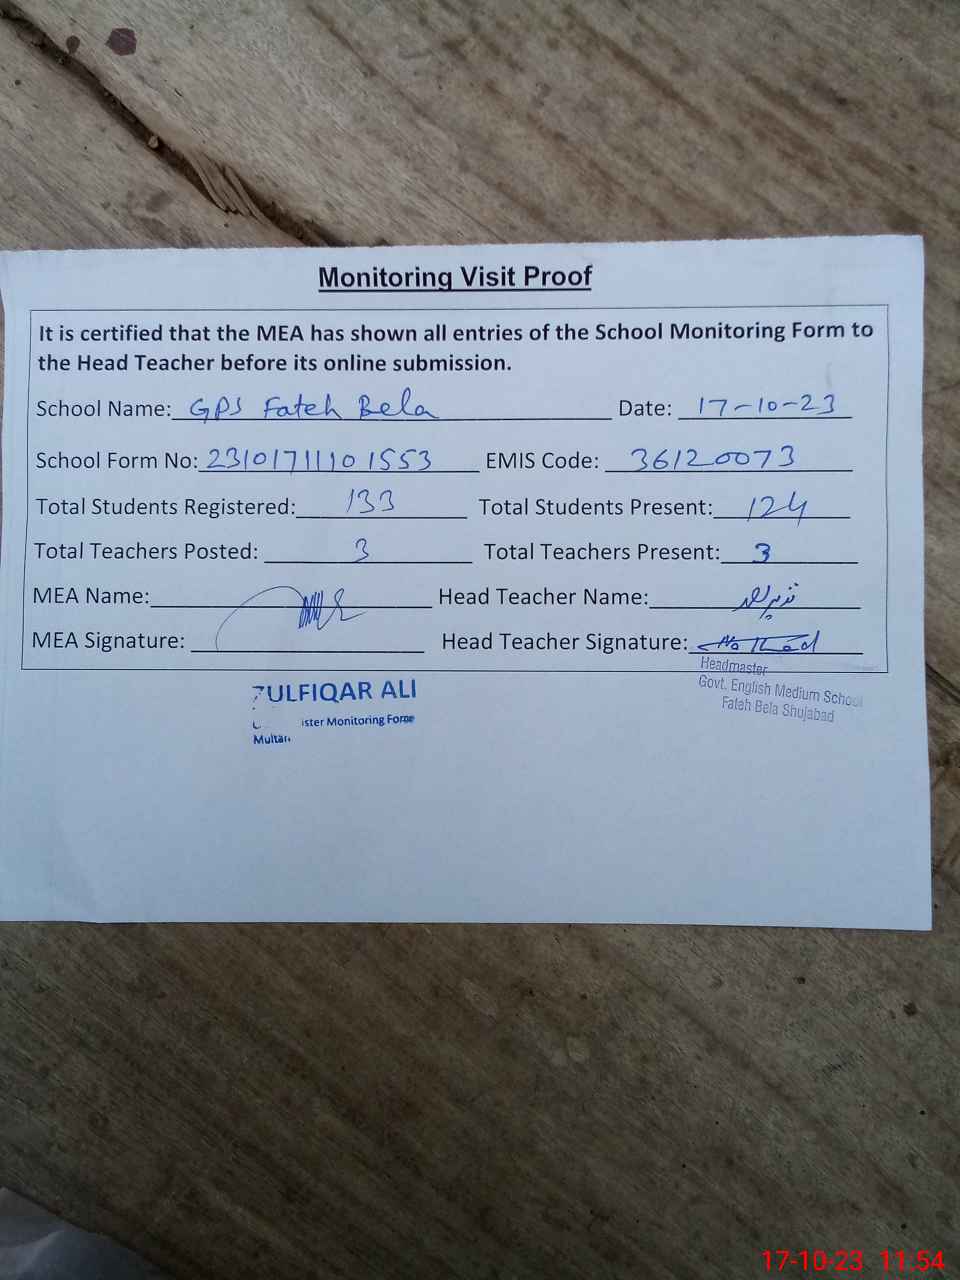 Monitoring Visit Proof
It is certified that the MEA has shown all entries of the School Monitoring Form to
the Head Teacher before its online submission.
School Name: GPS Fateh Bela Date: 17-10-23
School Form No: 23101711101553 EMIS Code: 36120073
Total Students Registered: 133 Total Students Present: 124
Total Teachers Posted: 3 Total Teachers Present: 3
MEA Name: Head Teacher Name:
MEA Signature: Head Teacher Signature:
Headmaster
Govt. English Medium School
Fateh Bela Shujabad
ZULFIQAR ALI
ister Monitoring Force
Multan
17-10-23 11:54